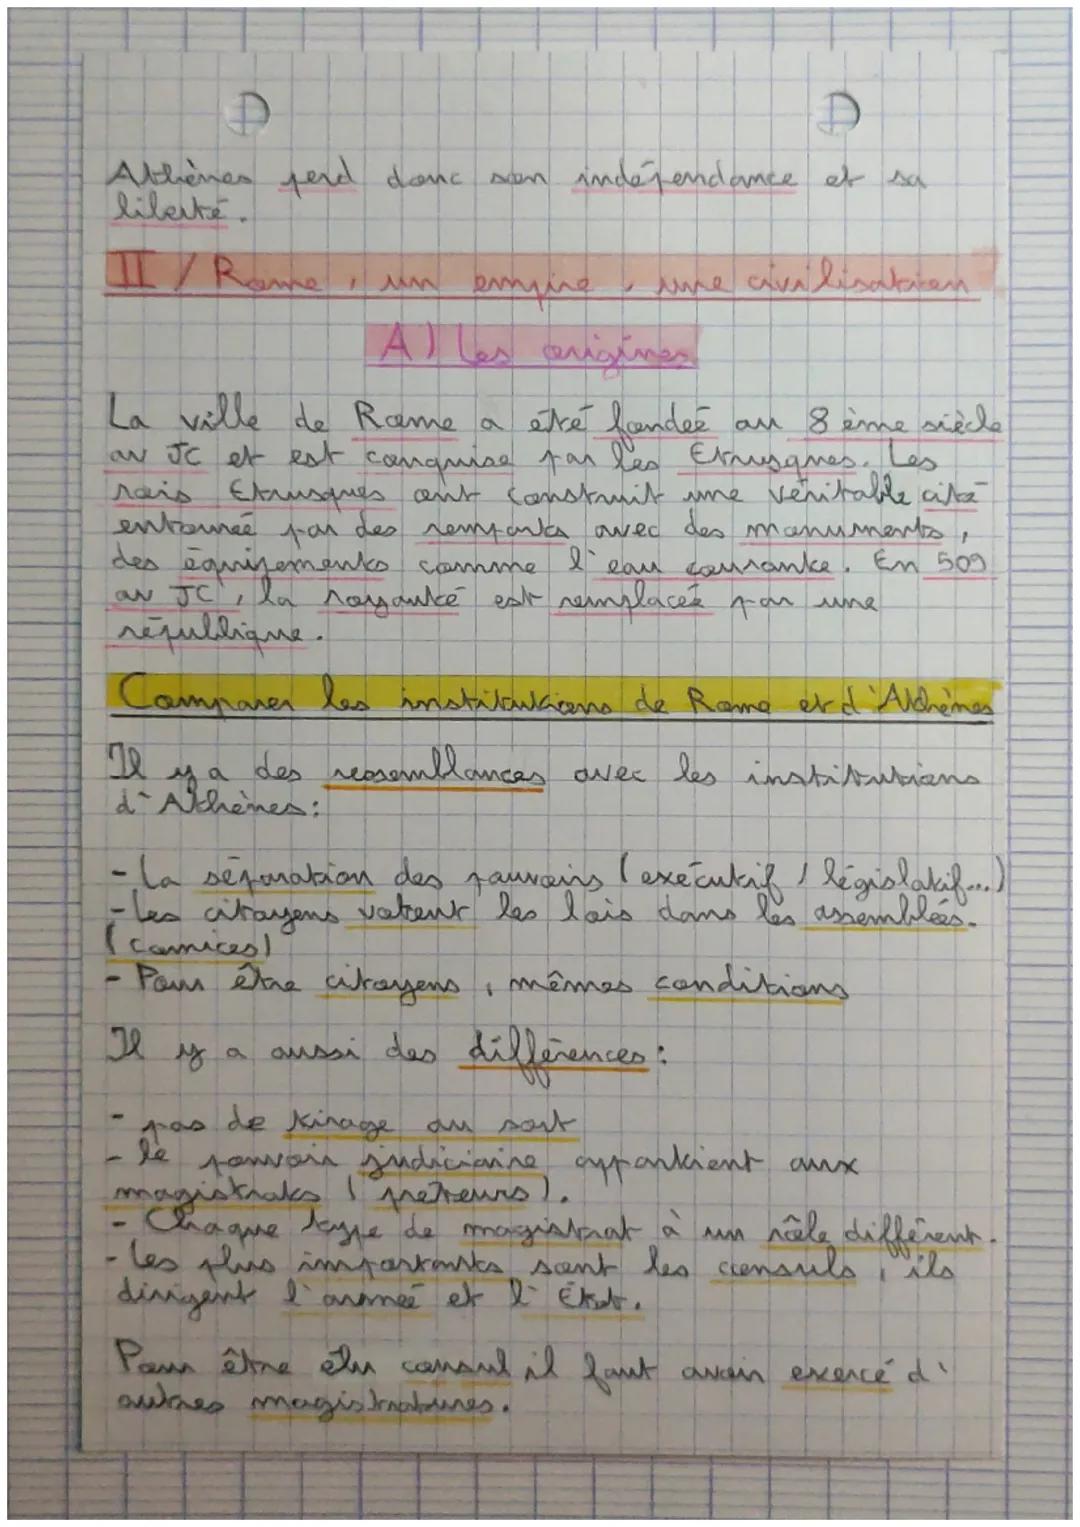 Athènes perd donc son indépendance et sa
liberté.
II / Rome, un empire, une civilisation
A) Les origines
La ville de Rome a été fondée au 8ème siècle
av JC et est conquise par les Etrusques. Les
rois Etrusques ont construit une véritable cité
entourée par des remparts avec des monuments,
des équipements comme l'eau courante. En 509
av JC, la royauté est remplacée par une
république.
Comparer les institutions de Rome et d'Athènes
Il y a des ressemblances avec les institutions
d'Athènes:
- La séparation des pouvoirs (exécutif / législatif...)
- Les citoyens votent les lois dans les assemblées.
(comices)
- Pour être citoyens, mêmes conditions
Il y a aussi des différences:
- pas de tirage au sort
- le pouvoir judiciaire appartient aux
magistrats (preteurs).
- Chaque type de magistrat à un rôle différent.
- Les plus importants sont les consuls, ils
dirigent l'armée et l'État.
Pour être élu consul il faut avoir exercé d'
autres magistratures.